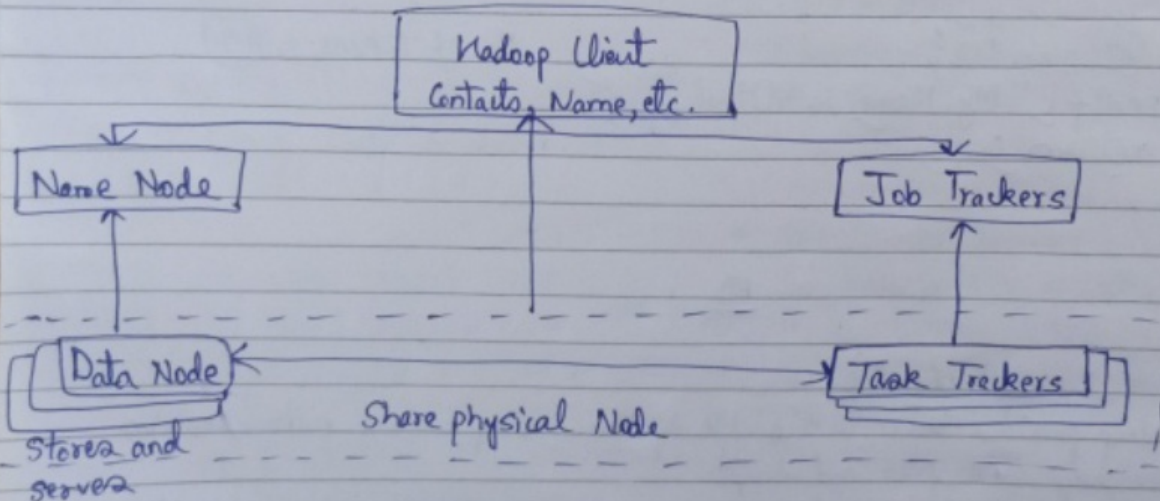 Hadoop Client
Contacts, Name, etc.
Name Node
Job Trackers
Data Node
Task Trackers
Share physical Node
Stores and
serves